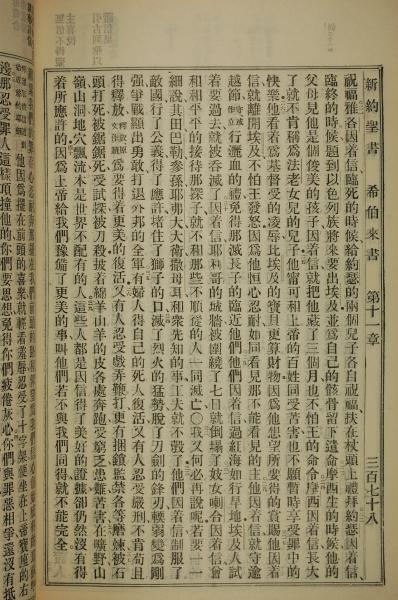 新約聖書　希伯來書　第十一章　三百七十八
祝福雅各因着信臨死的時候給約瑟的兩個兒子各自祝福扶在杖頭上禮拜約瑟因着信
臨終的時候題到以色列族將來要出埃及並爲自己的骸骨留下遺命摩西生的時候他的
父母見他是個俊美的孩子因着信就把他藏了三個月也不怕王的命令摩西因着信長大
了就不肯稱爲法老女兒的兒子他甯可和上帝的百姓同受苦害也不願暫時享受罪中的
快樂他看着爲基督受的凌辱比埃及的寶貝更算財物因爲他想望所要得的賞賜他因着
信就離開埃及不怕王發怒因爲他恒心忍耐如同看見那不能看見的主他因着信就守逾
越節守或作立行灑血的禮免得那滅長子的臨近他們他們因着信過紅海如行旱地埃及人試
着要過去就被吞滅了因着信耶利哥的城牆被圍繞了七日就倒塌了妓女喇合因着信曾
和和平平的接待那探子就不和那些不順從的人一同滅亡○我又何必再說呢若要一一
細說其田巴勒參孫耶弗大大衛撒母耳和衆先知的事工夫就不彀了他們因着信制服了
敵國行了公義得了應許堵住了獅子的口滅了烈火的猛勢脫了刀劍的鋒刃輭弱變爲剛
強爭戰顯出勇敢打退外邦的全軍有婦人得自己的死人復活又有人忍受嚴刑不肯苟且
得釋放釋放原文作贖爲要得着更美的復活又有人忍受戲弄鞭打更有捆鎖監禁各等磨煉被石
頭打死被鋸鋸死受試探被刀殺披着綿羊山羊的皮各處奔跑受窮乏患難苦害在曠野山
嶺山洞地穴飄流本是世界不配有的人這些人都是因信得了美好的證據卻仍然沒有得
着所應許的因爲上帝給我們豫備了更美的事叫他們若不與我們同得就不能完全
他因爲擺在前頭的喜樂就輕看羞辱忍受了十字架便坐在上帝寶座的右
邊那忍受罪人這樣頂撞他的你們要思想免得你們疲倦灰心你們與罪惡相爭還沒有抵